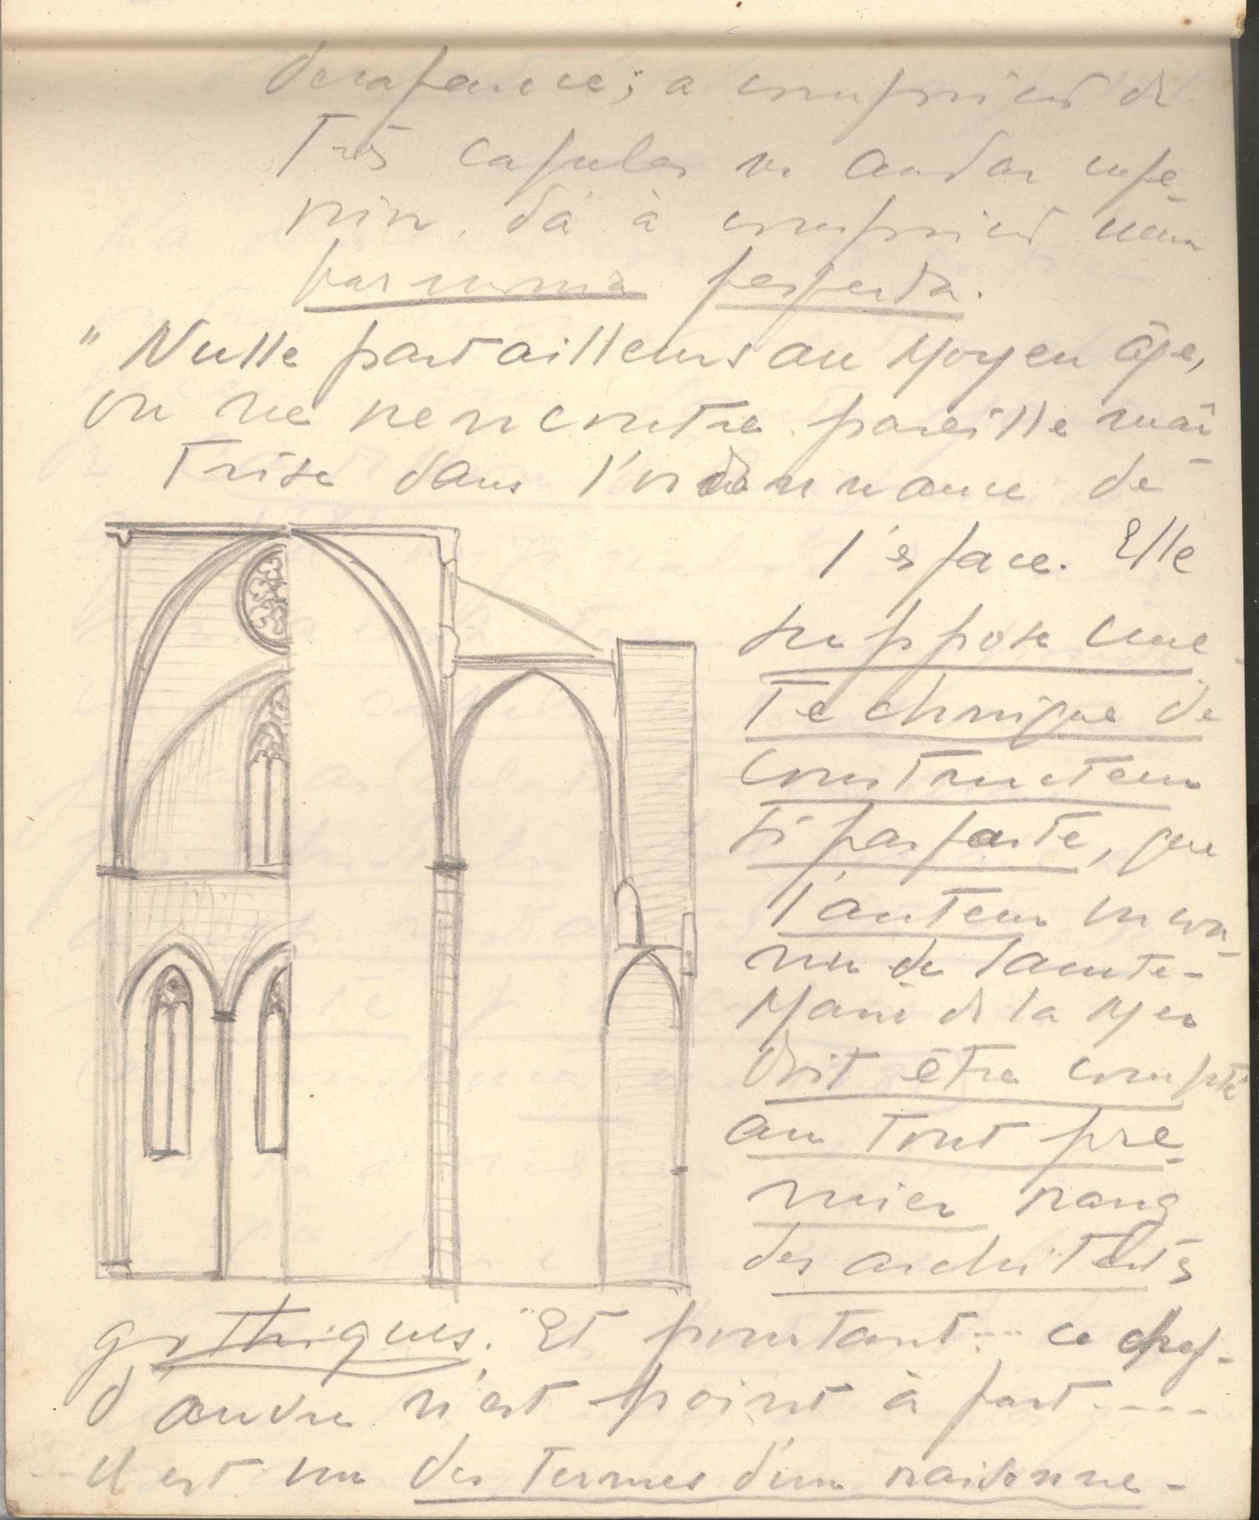 desafiante; a amplitud de
Tres capulas
nin, da à
harmonia perfecta.
" Nulle part ailleurs au Moyen âge,
on ne rencontre pareille mai-
trise dans l'ordonnance de
l'espace. Elle
suppose une
Technique de
constructeur
si parfaite, que
l'auteur incon-
nu de Sainte-
Marie de la Mer
doit être compté
au tout pre-
mier rang
des architectes
gothiques." Et pourtant... ce chef-
d'œuvre n'est point à part....
il est un des termes d'un raisonne-